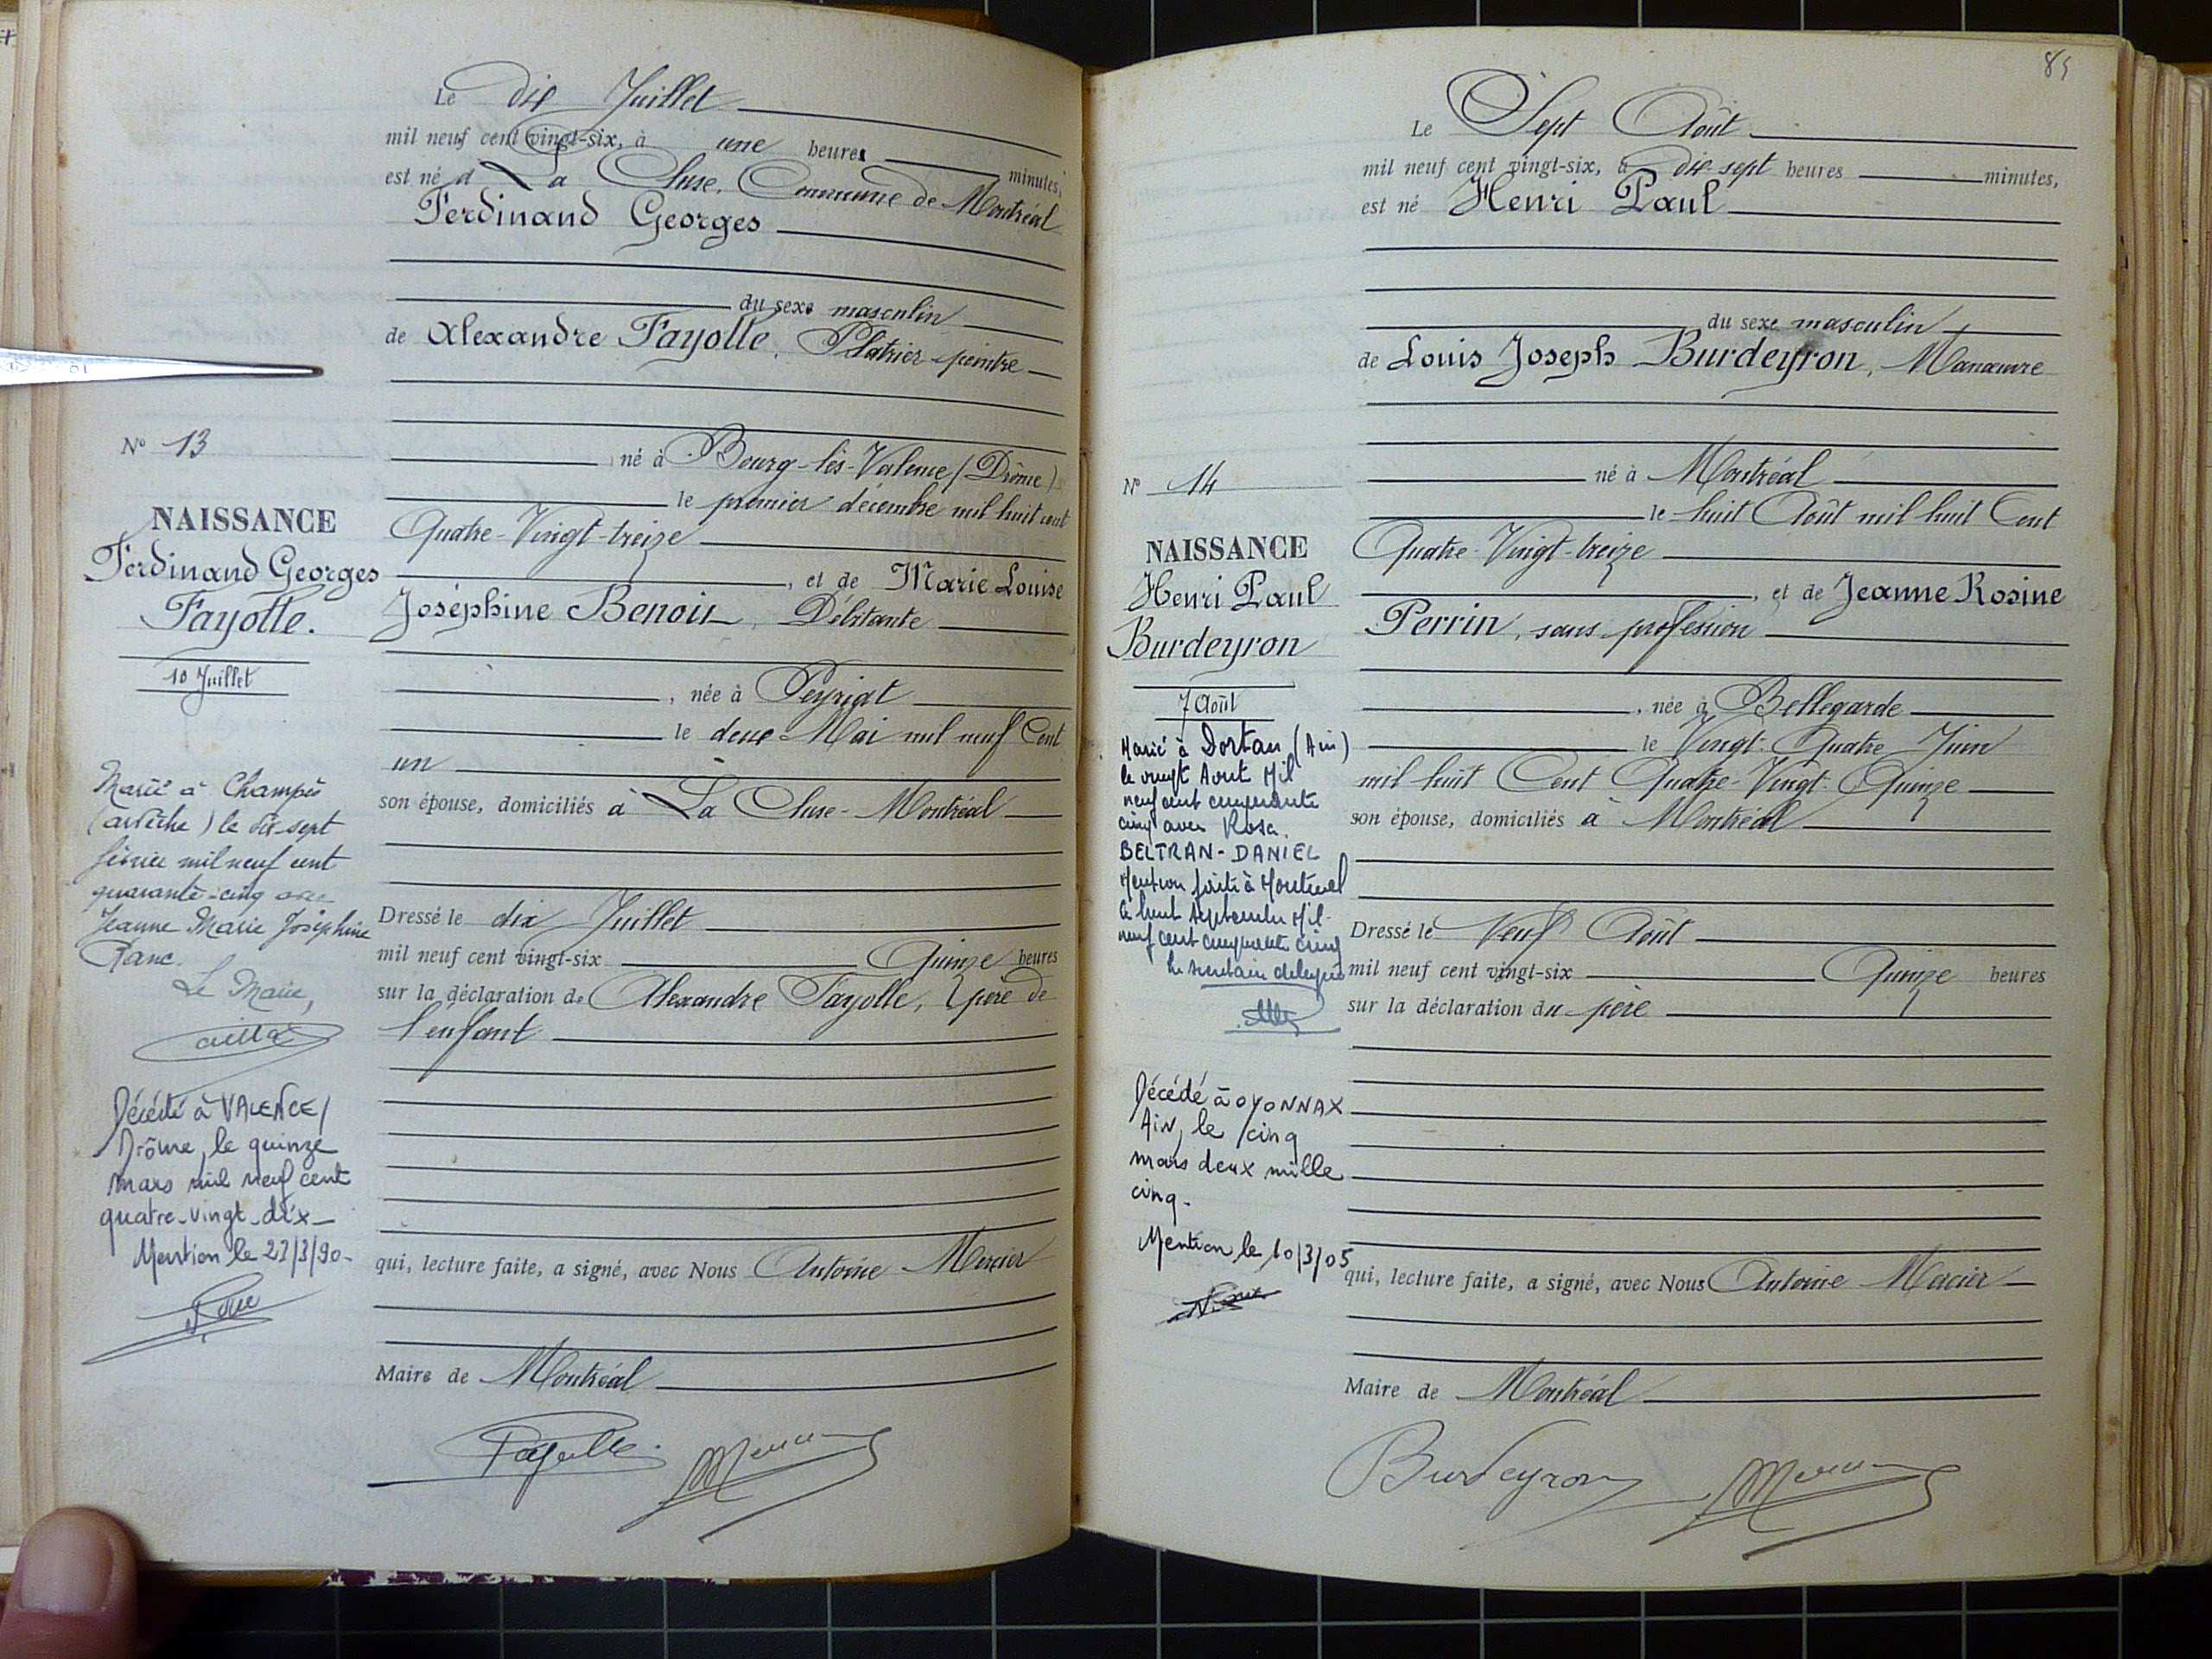 Le dix Juillet
mil neuf cent vingt-six, à une heures
minutes,
est né à La Cluse, Commune de Montréal
Ferdinand Georges
du sexe masculin
de Alexandre Fayolle, Plâtrier-peintre
N° 13
né à Bourg-lès-Valence (Drôme)
le premier décembre mil huit cent
Quatre-Vingt-treize
NAISSANCE
Ferdinand Georges
Fayolle.
10 Juillet
, et de Marie Louise
Joséphine Benoit, Débitante
, née à Peyriat
le deux Mai mil neuf Cent
un
son épouse, domiciliés à La Cluse-Montréal
Marié à Champis
(ardèche) le dix sept
février mil neuf cent
quarante-cinq avec
Jeanne Marie Joséphine
Ranc.
Le Maire,
Décédé à VALENCE/
Drôme, le quinze
mars mil neuf cent
quatre-vingt-dix-
Mention le 23/3/90-
Dressé le dix Juillet
mil neuf cent vingt-six Quinze heures
sur la déclaration de Alexandre Fayolle, père de
l'enfant
qui, lecture faite, a signé, avec Nous Antoine Mercier
Maire de Montréal
Fayolle
Mercier
85
Le Sept Août
mil neuf cent vingt-six, à dix-sept heures minutes,
est né Henri Paul
du sexe masculin
de Louis Joseph Burdeyron, Manœuvre
N° 14
né à Montréal
le huit Août mil huit Cent
Quatre-Vingt-treize
NAISSANCE
Henri Paul
Burdeyron
7 Août
, et de Jeanne Rosine
Perrin, sans profession
, née à Bellegarde
le Vingt-Quatre Juin
mil huit Cent Quatre-Vingt-Quinze
son épouse, domiciliés à Montréal
Marié à Dortan (Ain)
le vingt Aout Mil
neuf cent cinquante
cinq avec Rosa
BELTRAN-DANIEL
Mention faite à Montréal
le huit Septembre Mil-
neuf cent cinquante cinq
le secrétaire délégué
Décédé à OYONNAX
AiN, le cinq
mars deux mille
cinq-
Mention le 10/3/05
Dressé le Neuf Août
mil neuf cent vingt-six Quinze heures
sur la déclaration du père
qui, lecture faite, a signé, avec Nous Antoine Mercier
Maire de Montréal
Burdeyron
Mercier